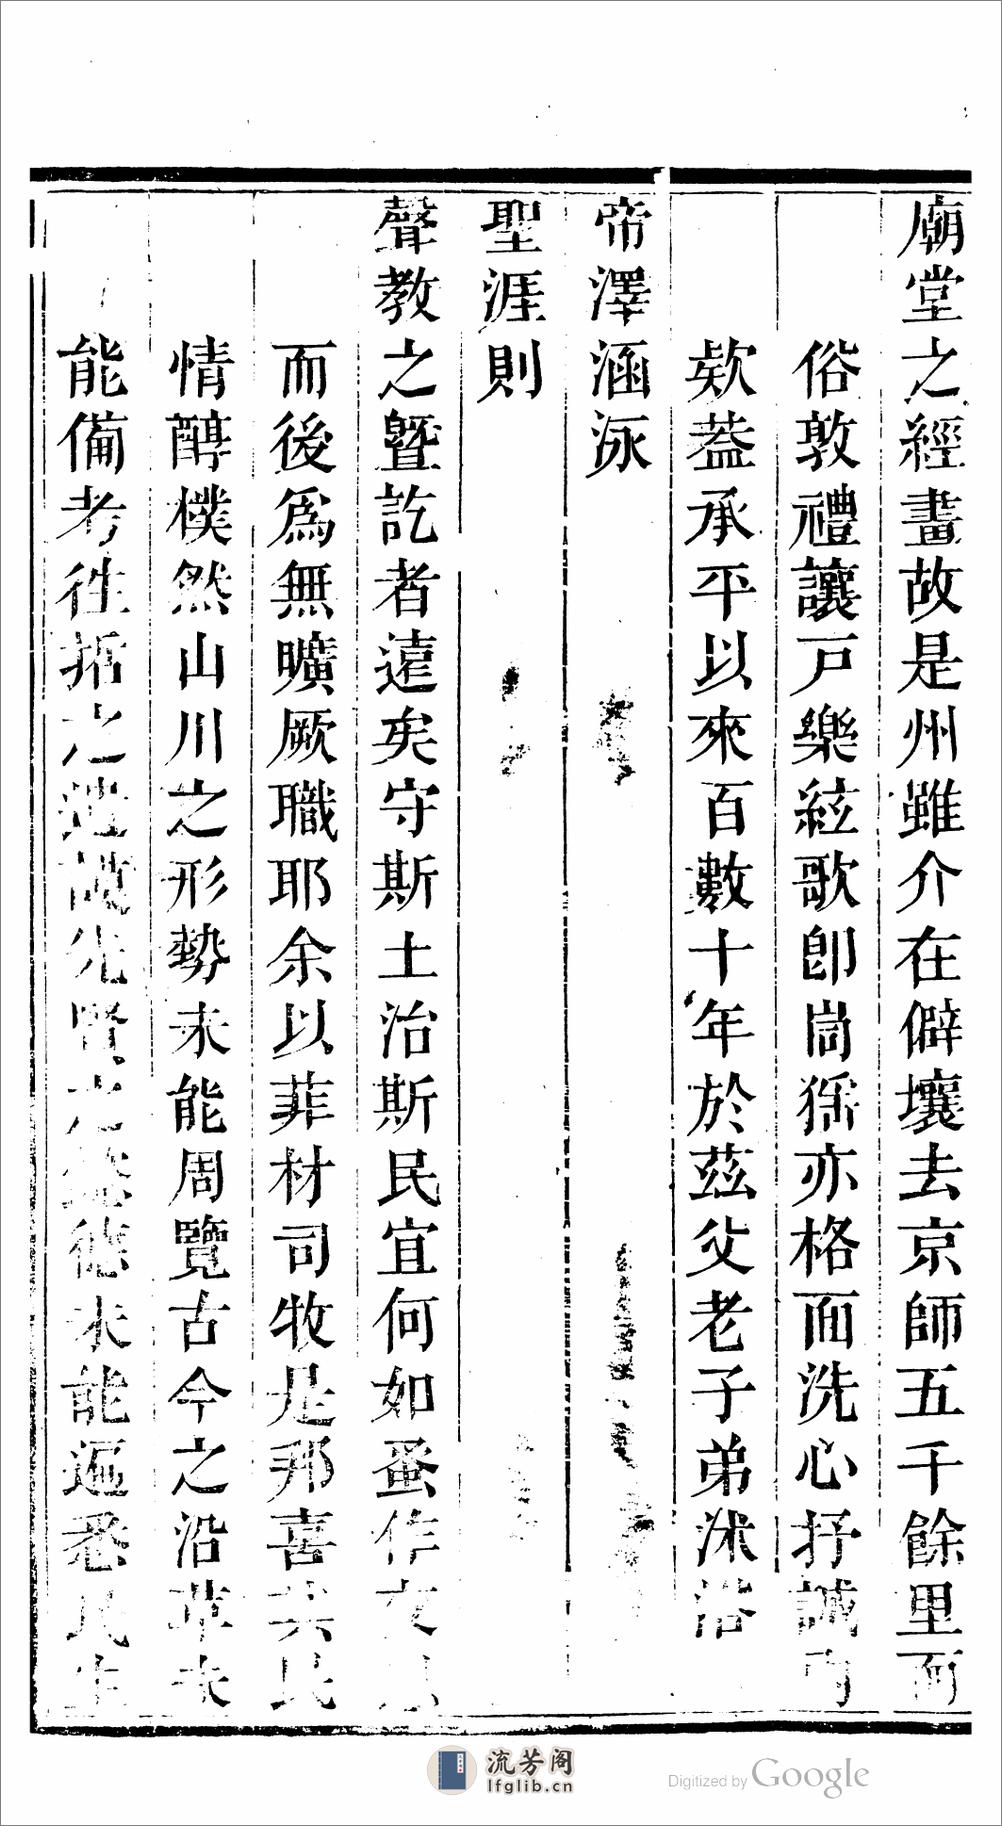 廟堂之經畫故是州雖介在僻壤去京師五千餘里而
俗敦禮讓戸樂絃歌卽崗猺亦格面洗心抒誠向
欵葢承平以來百數十年於茲父老子弟沐浴
帝澤涵泳
聖涯則
聲教之曁訖者遠矣守斯土治斯民宜何如蚤作夜思
而後爲無曠厥職耶余以菲材司牧是邦喜其民
情醇樸然山川之形勢未能周覽古今之沿革未
能備考徃拓之遺 先賢之 德未能遍悉民生
流芳阁
lfglib.cn
Digitized by Google